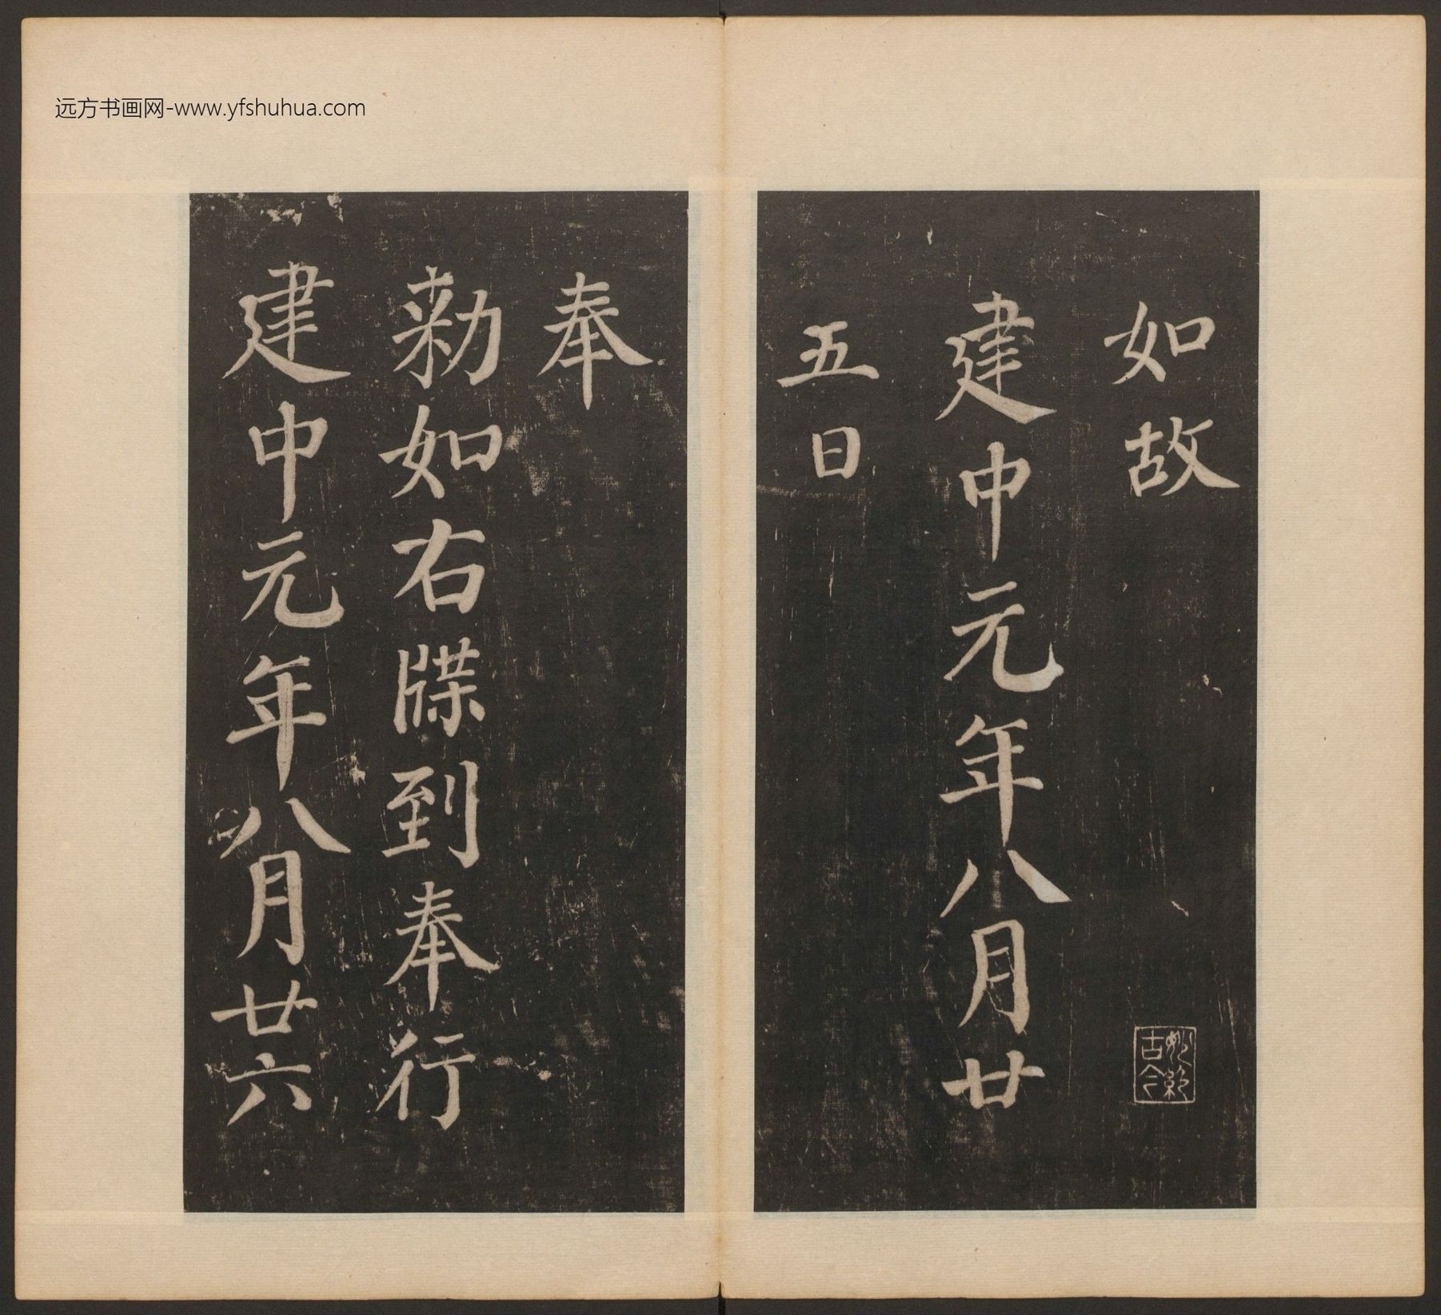 远方书画网-www.yfshuhua.com
如故
建中元年八月廿
五日
奉
勑如右牒到奉行
建中元年八月廿六